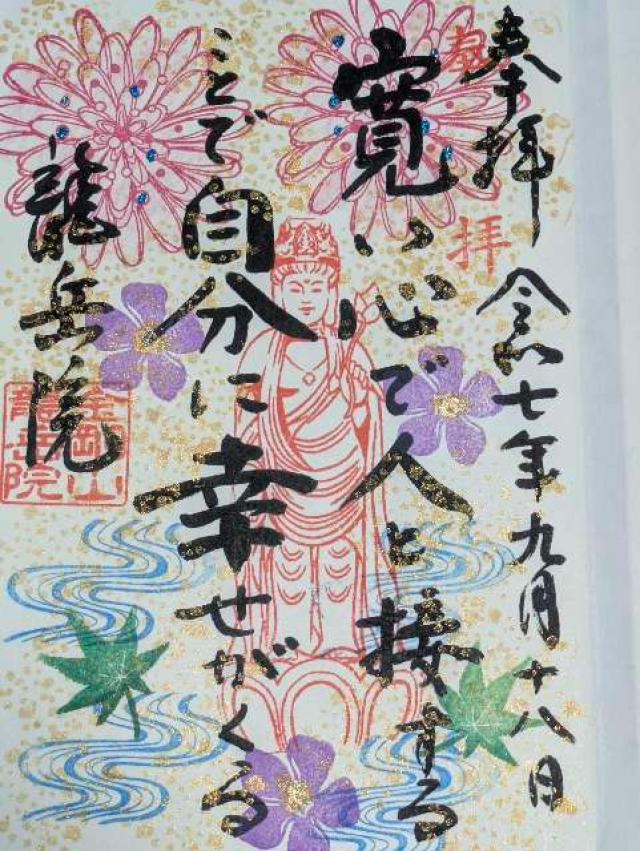 奉拝 令和七年九月十八日
奉拝
寛い心で人と接する
ことで自分に幸せがくる
龍岳院
龍岳院